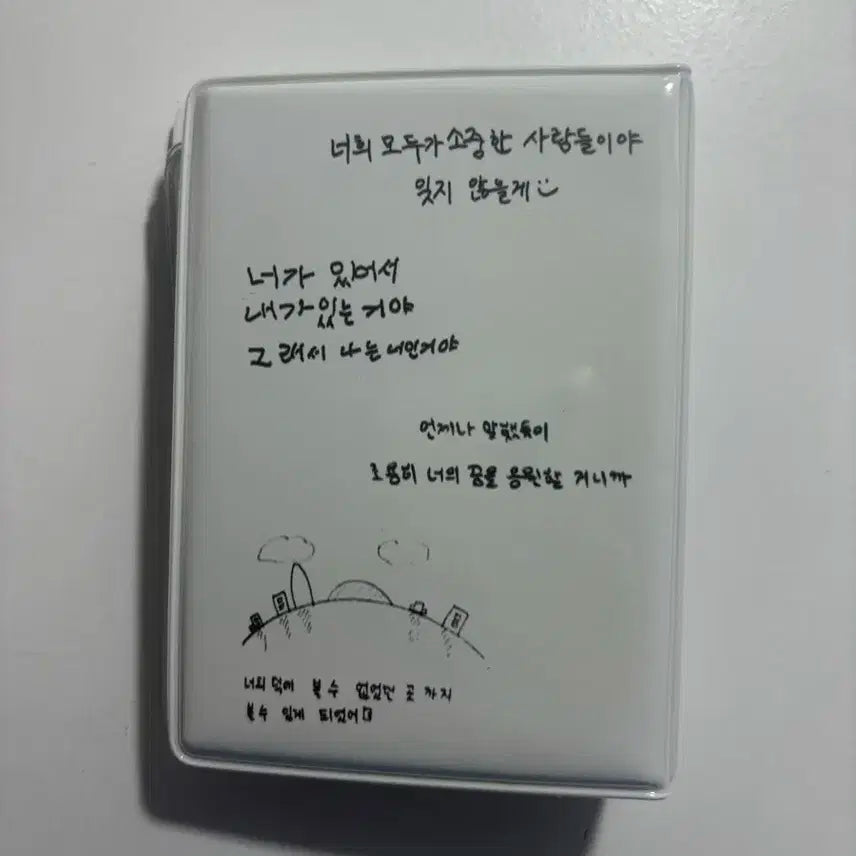 너희 모두가 소중한 사람들이야
잊지 않을게
너가 있어서
내가 있는거야
그래서 나는 너인거야
언제나 말했듯이
조용히 너의 꿈을 응원할 거니까
너희 덕에 볼 수 없었던 곳 까지
볼 수 있게 되었어